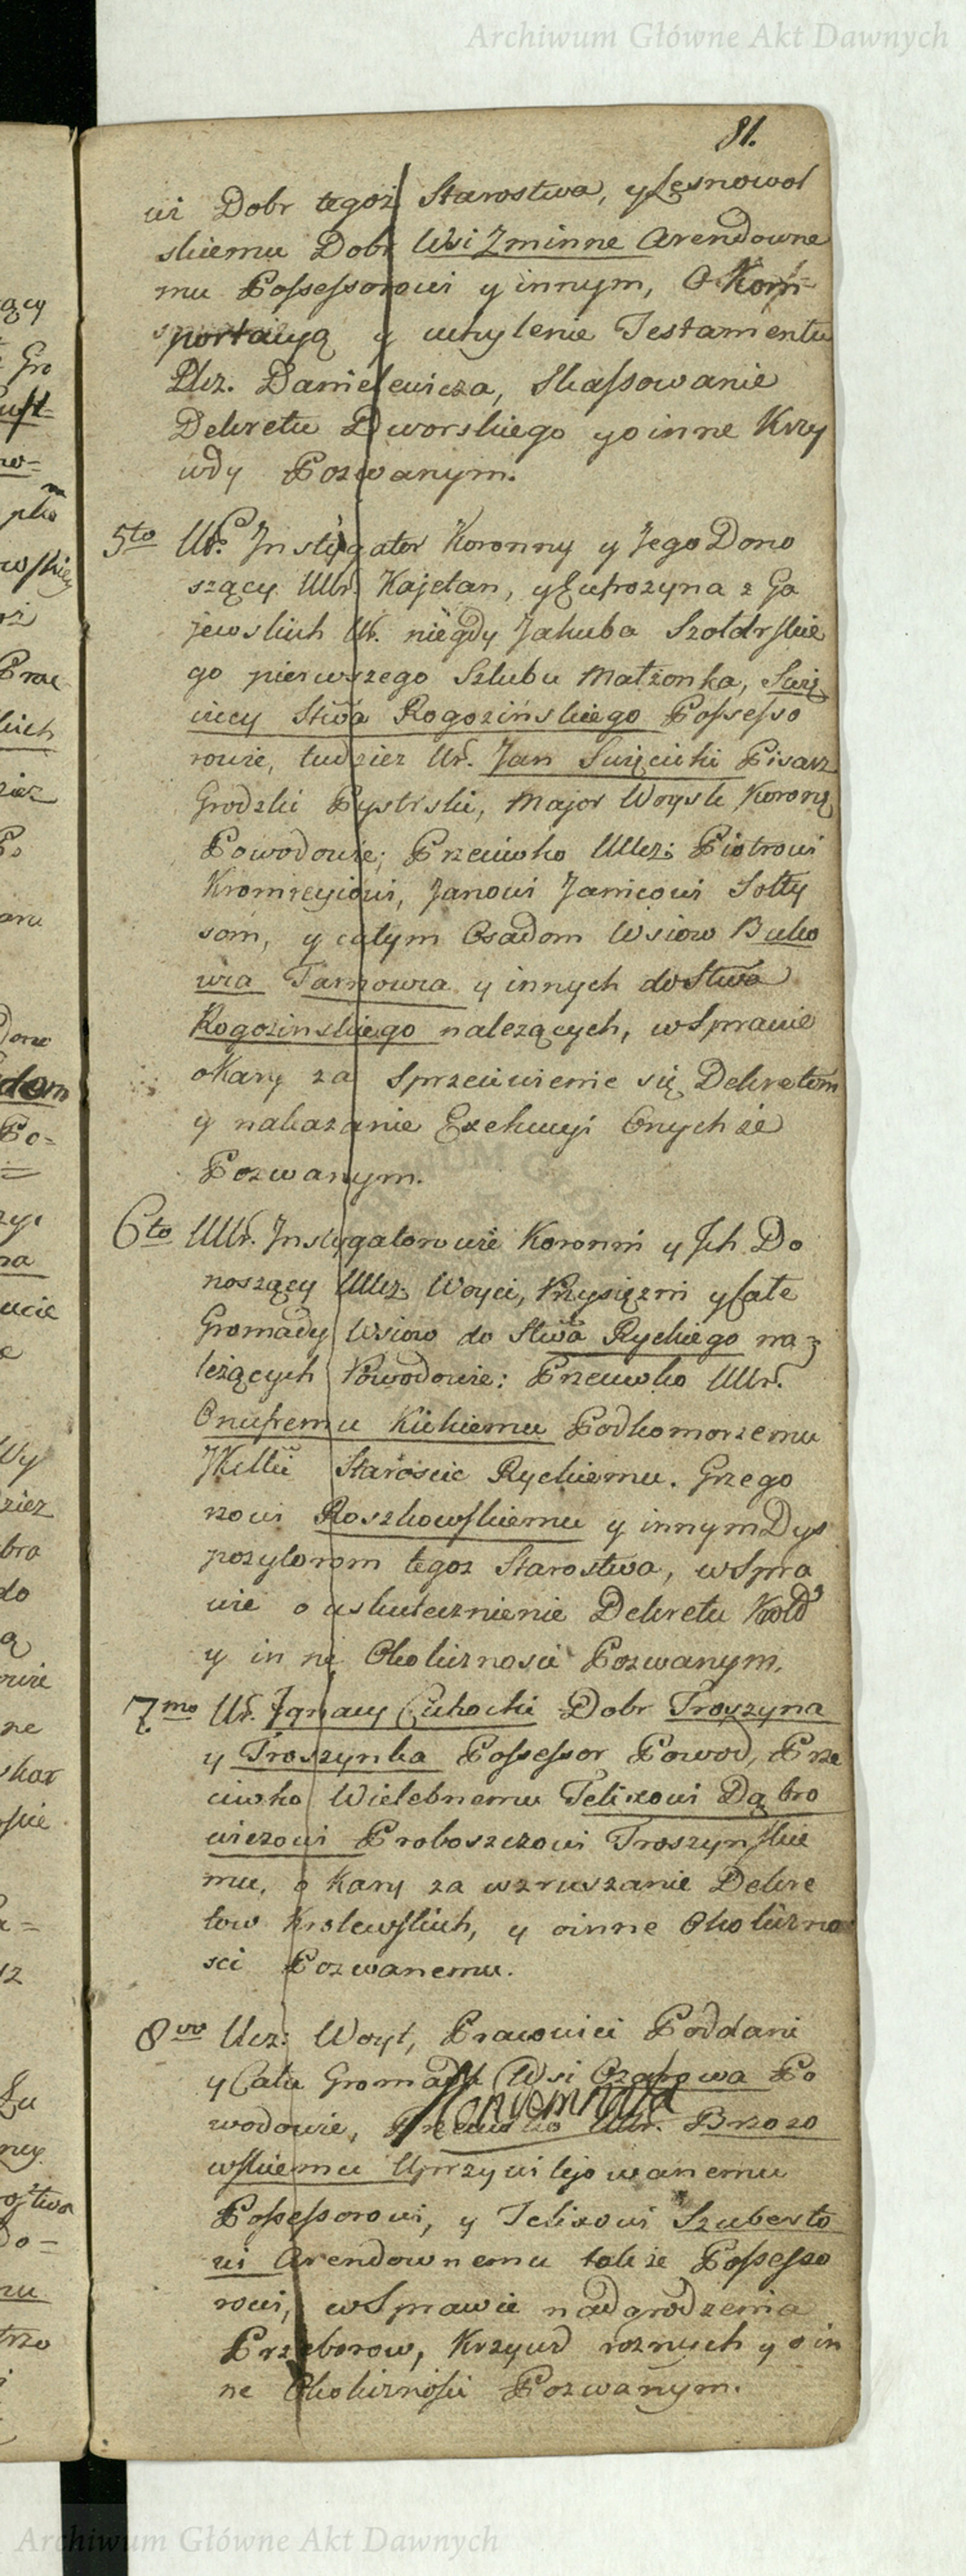 Archiwum Główne Akt Dawnych
81.
wi Dobr tegoż Starostwa, y Lesnowol
skiemu Dobr Wsi Zminne Arendowne
mu Possessorowi y innym, O Kom-
portacyą y uchylenie Testamentu
Ulz. Danielewicza, Skassowanie
Dekretu Dworskiego y o inne Krzy
wdy Pozwanym.
5to Ur. Instygator Koronny y Jego Dono
szący Uur. Kajetan, y Eufrozyna z Ga
jewskich Ur. niegdy Jakuba Szołdrskie
go pierwszego Szlubu Małżonka, Swię
ciccy Stwa Rogozińskiego Possesso
rowie, tudzież Ur. Jan Swięcicki Pisarz
Grodzki Bystrski, Major Woysk Koron:
Powodowie; Przeciwko UUcz: Piotrowi
Kromreyiowi, Janowi Janicowi Sołty
som, y całym Osadom Wsiow Buko
wia Tarnowia y innych do Stwa
Rogozinskiego należących, w Sprawie
o Kary za Sprzeciwienie się Dekretom
y nakazanie Exekucyi Onychże
Pozwanym.
6to UUr. Instygatorowie Koronni y Ich Do
noszący UUcz. Woyci, Przysiężni y Całe
Gromady Wsiow do Stwa Ryckiego na
leżących Powodowie: Przeciwko UUr.
Onufremu Kickiemu Podkomorzemu
JKMci Staroście Ryckiemu. Grzego
rzowi Roszkowskiemu y innym Dys
pozytorom tegoz Starostwa, w Spra
wie o uskutecznienie Dekretu
y inne Okoliczności Pozwanym.
7mo Ur. Ignacy Cichocki Dobr Troszyna
y Troszynka Possessor Powod, Prze
ciwko Wielebnemu Felixowi Dąbro
wiczowi Proboszczowi Troszynskie
mu, o Kary za wzruszanie Dekre
tow Krolewskich, y o inne Okoliczno
sci Pozwanemu.
8vo Ucz: Woyt, Pracowici Poddani
y Cała Gromada Wsi Czajowa Po
wodowie, Przeciwko Uur. Brzozo
wskiemu Uprzywilejowanemu
Possessorowi, y Felixowi Szuberto
wi Arendownemu takze Possesso
rowi, w Sprawie nadgrodzenia
Przeborow, Krzywd roznych y o in
ne Okolicznosci Pozwanym.
Archiwum Główne Akt Dawnych